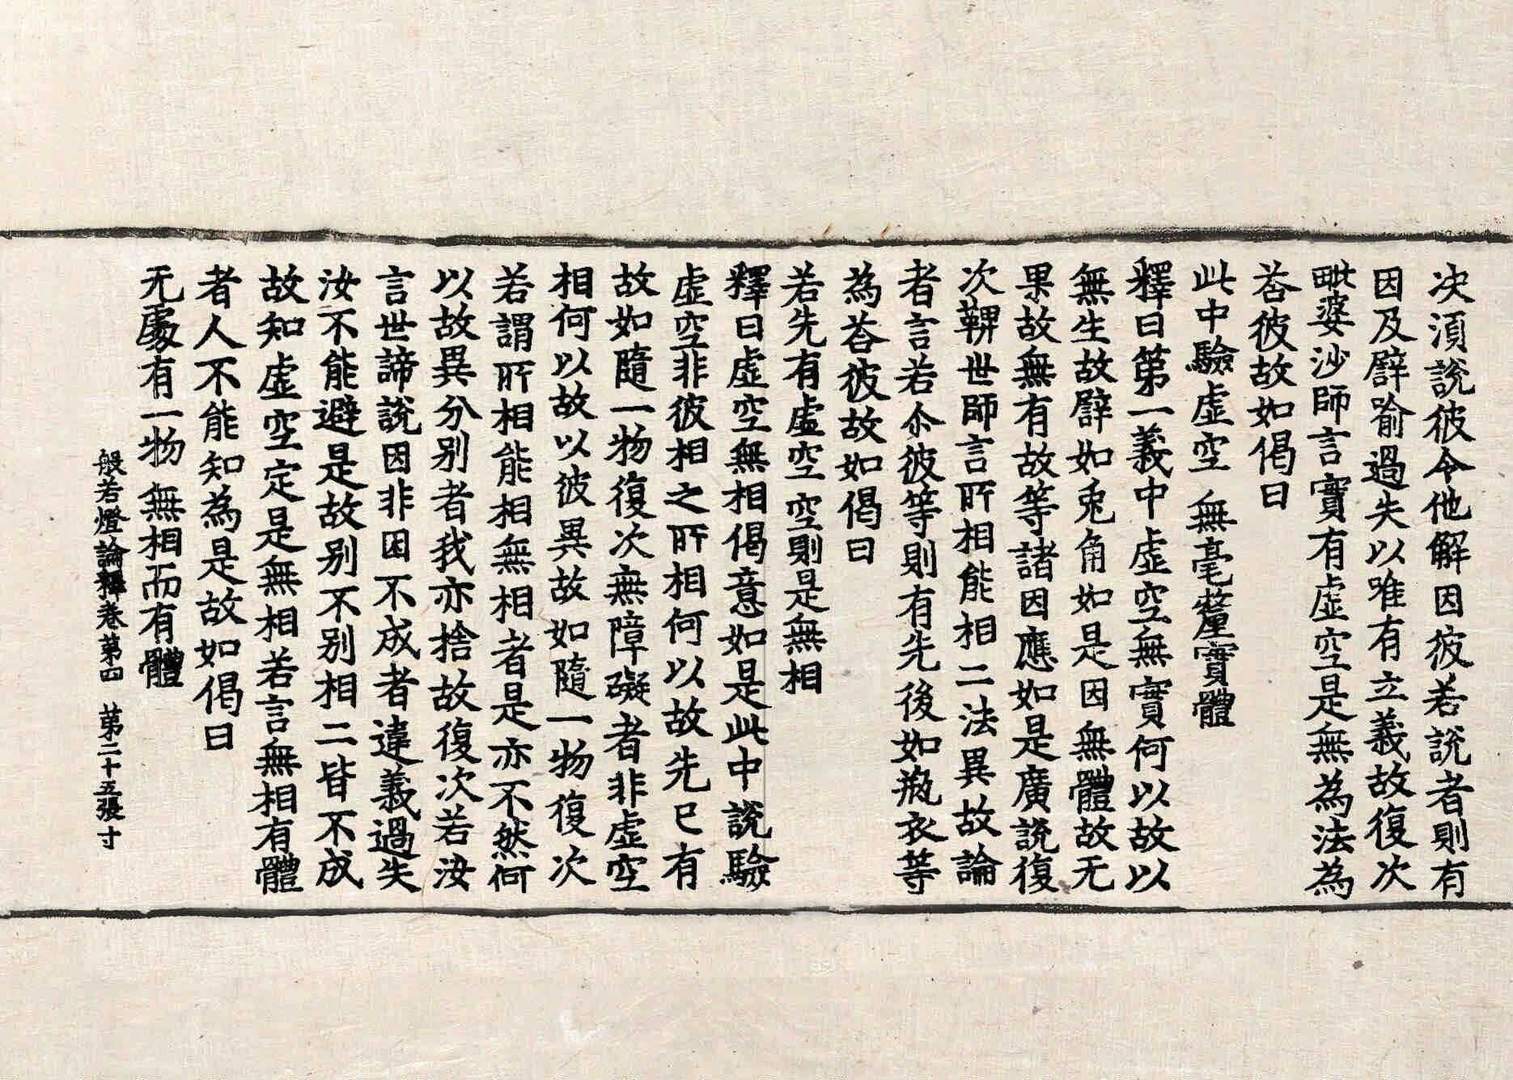 次須說彼令他解因彼若說者則有
因及譬喻過失以唯有立義故復次
毗婆沙師言實有虛空是無為法為
荅彼故如偈曰
此中驗虛空 無毫釐實體
釋曰第一義中虛空無實何以故以
無生故譬如兎角如是因無體故无
果故無有故等諸因應如是廣說復
次鞞世師言所相能相二法異故論
者言若尒彼等則有先後如瓶衣等
為荅彼故如偈曰
若先有虛空 空則是無相
釋曰虛空無相偈意如是此中說驗
虛空非彼相之所相何以故先已有
故如隨一物復次無障礙者非虛空
相何以故以彼異故如隨一物復次
若謂所相能相無相者是亦不然何
以故異分別者我亦捨故復次若汝
言世諦說因非因不成者違義過失
汝不能避是故別不別相二皆不成
故知虛空定是無相若言無相有體
者人不能知為是故如偈曰
无處有一物 無相而有體
般若燈論釋卷第四 第二十五張 寸